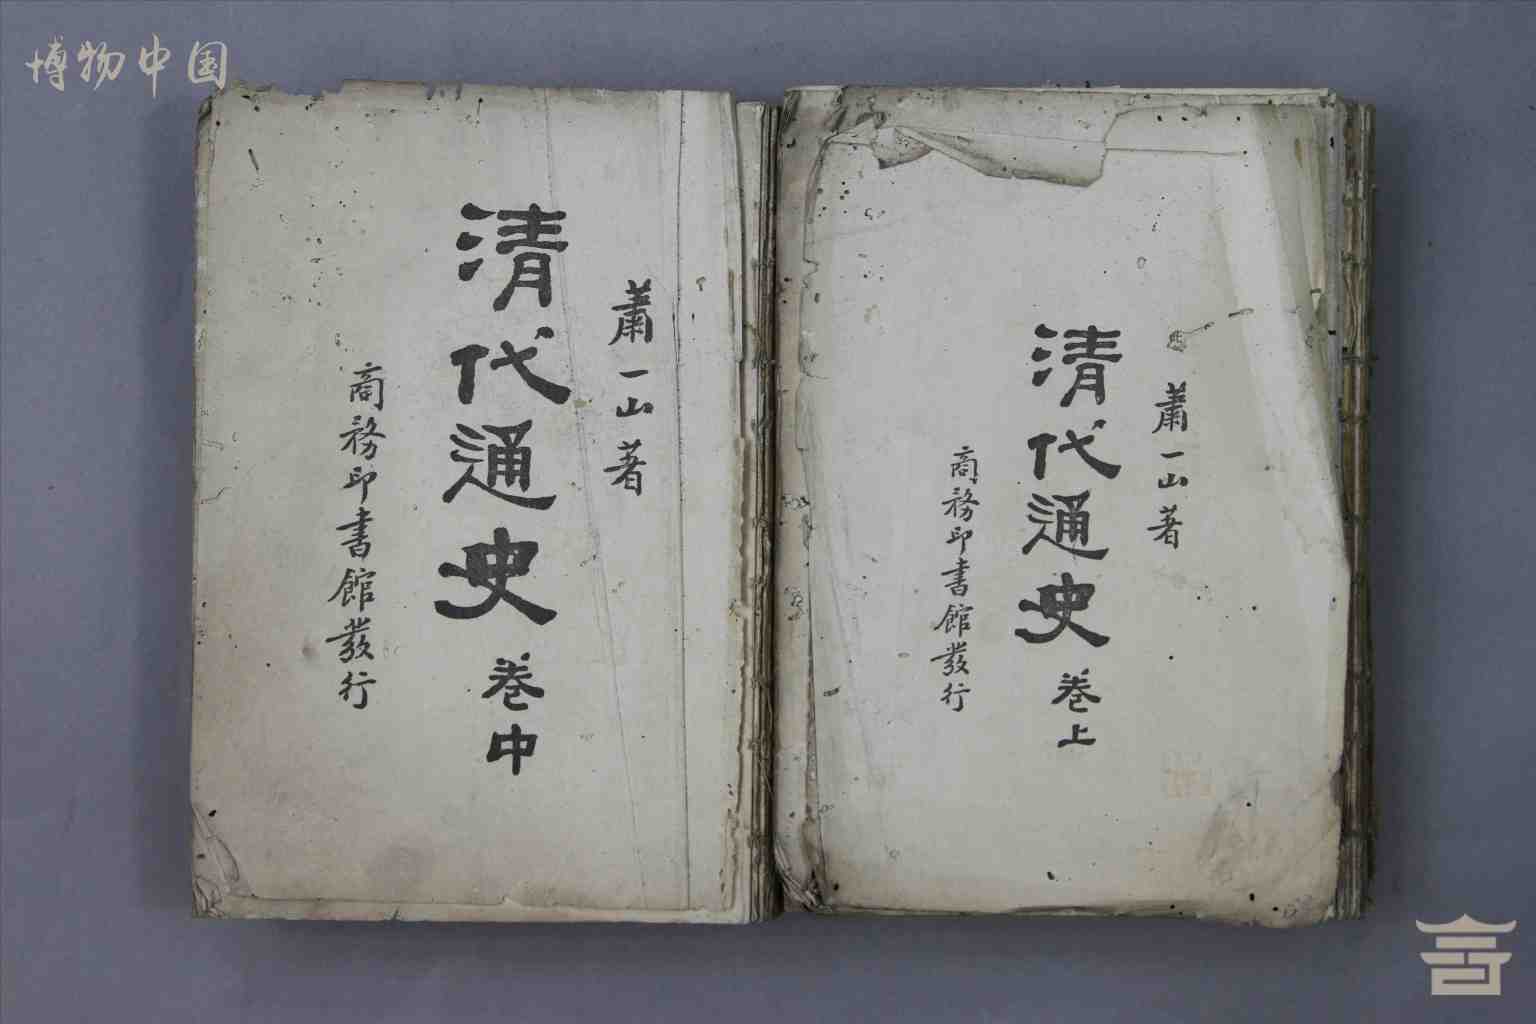 博物中国
蕭一山著
清代通史 卷上
商務印書館發行
蕭一山著
清代通史 卷中
商務印書館發行